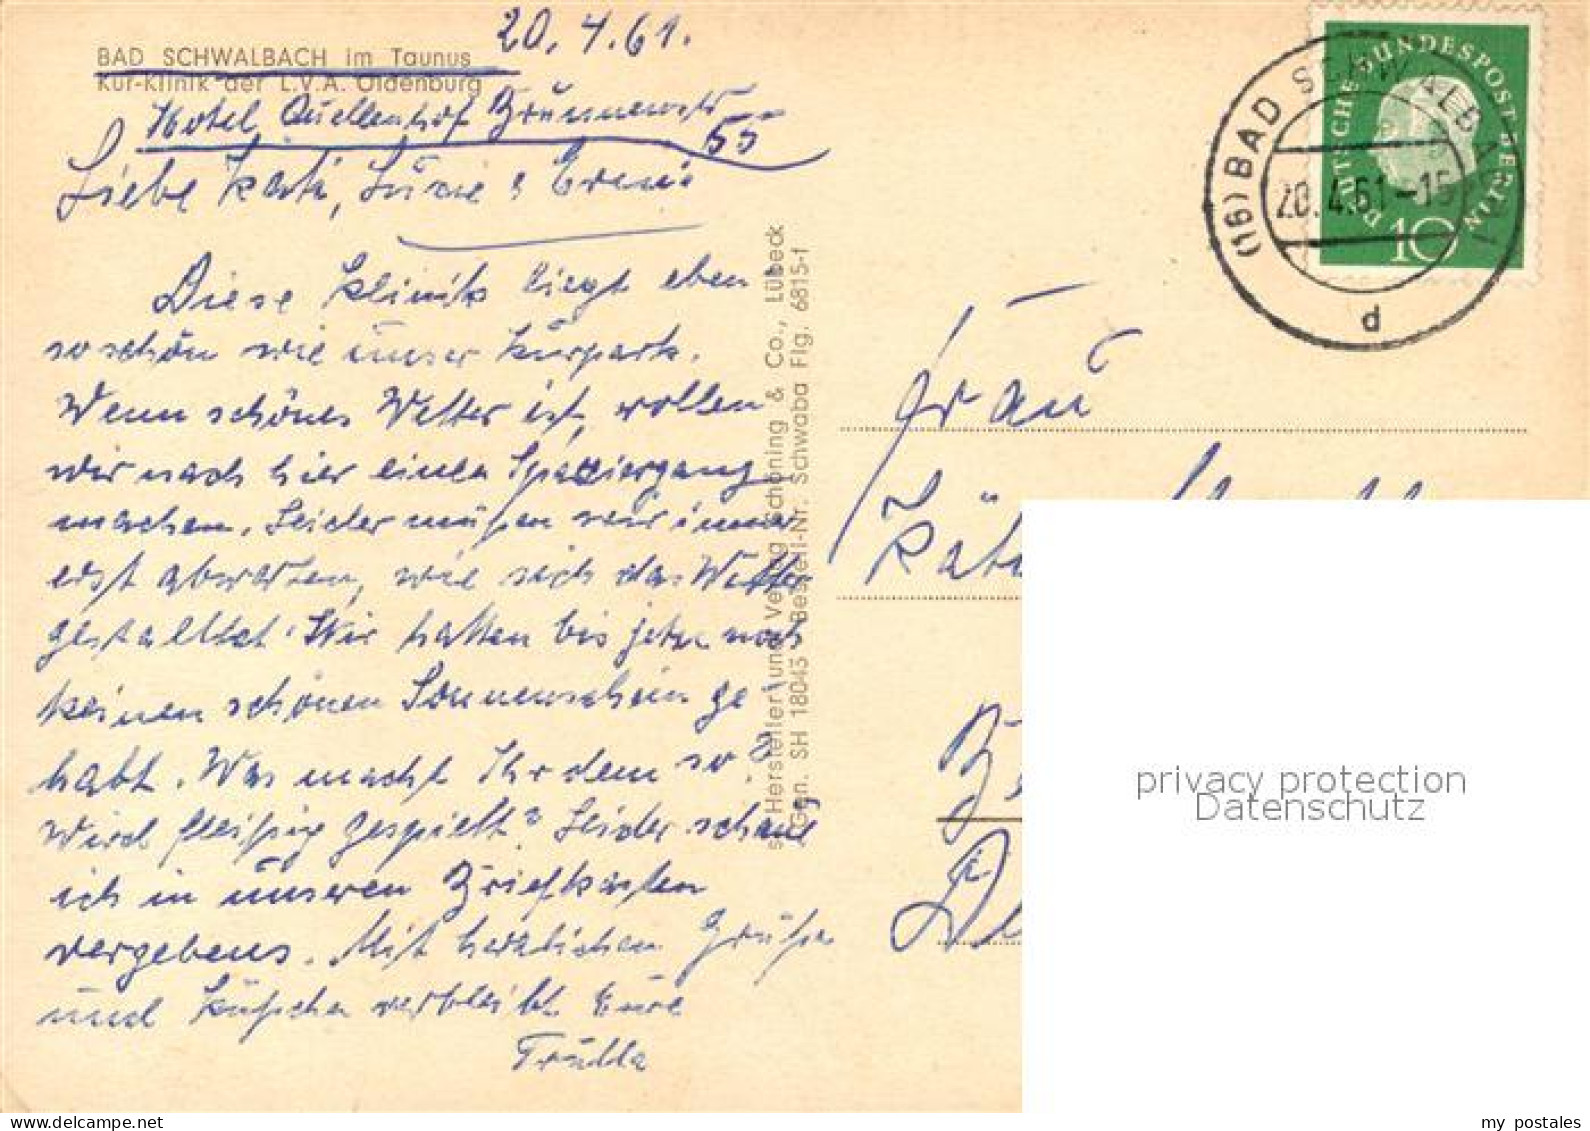 20.4.61.
BAD SCHWALBACH im Taunus
Kur-Klinik der L.V.A. Oldenburg
Hotel Quellenhof Brunnenstr
55
Liebe Kati,
Diese Klinik liegt eben
so schön wie unser Kurpark.
Wenn schönes Wetter ist, wollen
wir nach hier einen Spaziergang
machen. Leider müßen wir immer
erst abwarten, wie sich das Wetter
gestaltet. Wir hatten bis jetzt noch
keinen schönen Sonnenschein ge-
habt. Was macht Ihr dem so?
Wird fleißig gespielt? Leider schaue
ich in unseren Briefkasten
vergebens. Mit herzlichen Grüßen
und Küßchen verbleibt Eure
Trulla
Hersteller und Verlag Schöning & Co., Lübeck
Gen. SH 18045 Bestell-Nr. Schwaba Flg. 6815-f
DEUTSCHE BUNDESPOST BERLIN
10
(16) BAD SCHWALBACH
20.4.61-16
d
Frau
privacy protection
Datenschutz
my postales